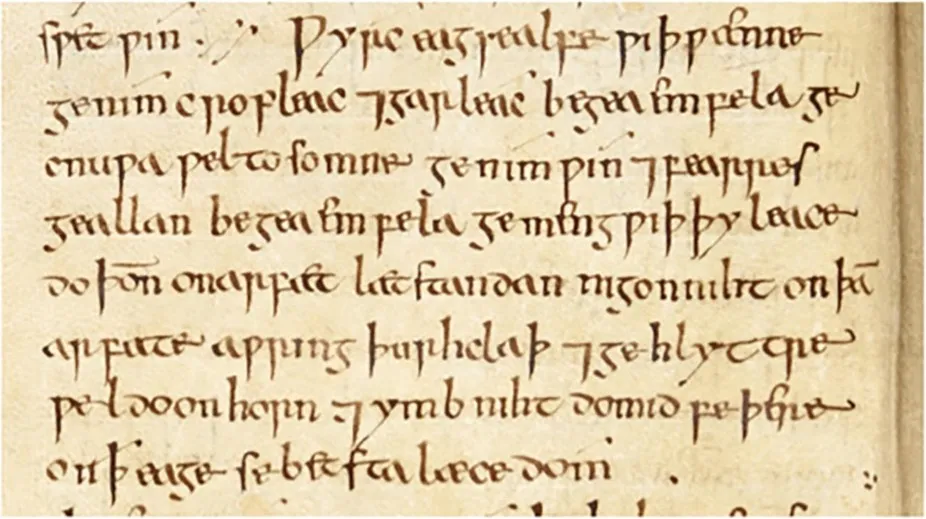 sƿet ƿin . Ƿyrc eagsealfe ƿiþ ƿænne
genim cropleac ⁊ garleac begea emfela ge
cnuƿa ƿel tosomne genim ƿin ⁊ fearres
geallan begea emfela gemeng ƿiþ þy leace
do þoñ on arfæt læt standan nigon niht on þā
arfate aƿring þurh claþ ⁊ gehlyttre
ƿel do on horn ⁊ ymb niht do mid feþre
on ꝥ eage se betsta læcedom :